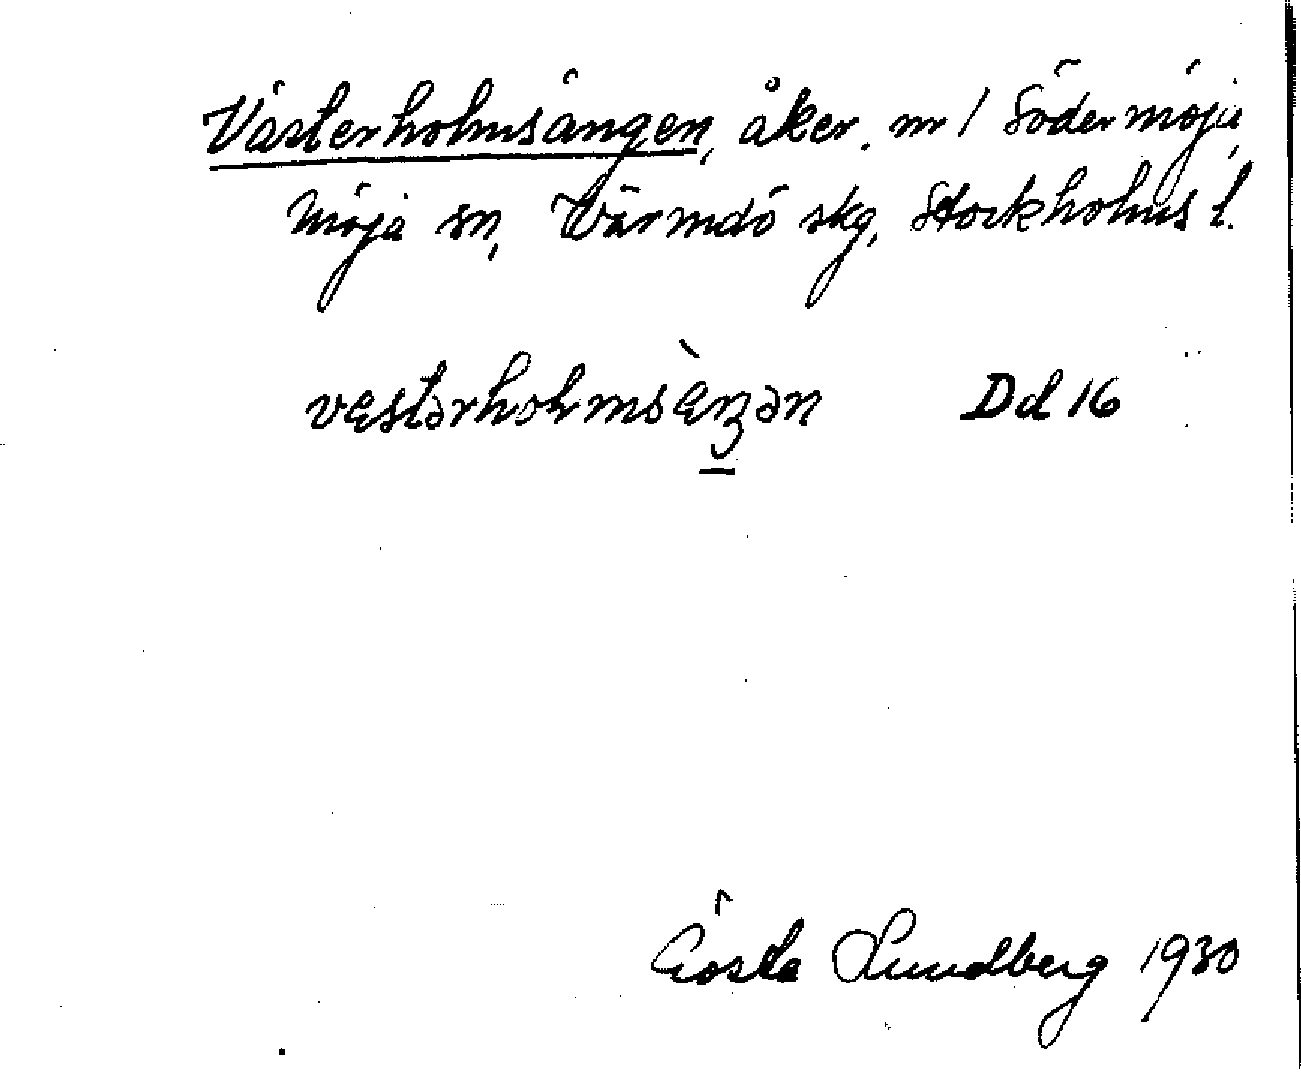 Västerholmsängen, åker, nr 1 Södermöja,
Möja sn, Värmdö skg, Stockholms l.
vestərholmsèŋən Dd 16
Gösta Lundberg 1930